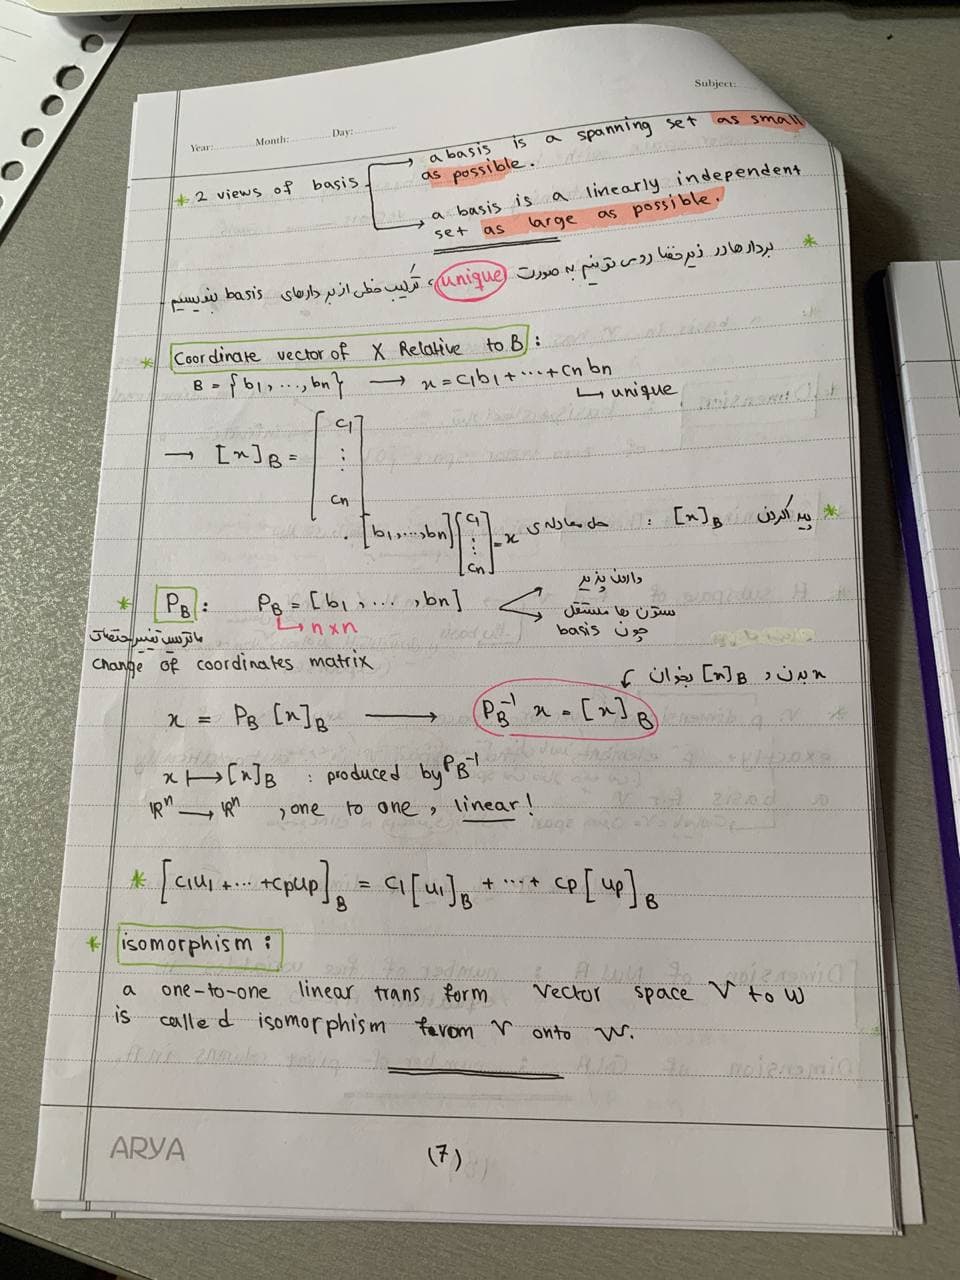 Subject:
Year: Month: Day:
* 2 views of basis → a basis is a spanning set as small
as possible.
→ a basis is a linearly independent
set as large as possible.
* بردارها در زیرفضا رو می‌تونیم به صورت unique، ترکیب خطی از بردارهای basis بنویسیم
* Coordinate vector of X Relative to B :
B = {b1, ..., bn} → x = c1b1 + ... + cn bn
↳ unique
→ [x]B = [c1 ⋮ cn]
* پیدا کردن [x]B : حل معادله‌ی [b1, ..., bn] [c1 ⋮ cn] = x
* PB : PB = [b1, ..., bn]
↳ n×n
وارون پذیر
ستون ها مستقل
چون basis
ماتریس تغییر مختصات
change of coordinates matrix
x بدن و [x]B بخوان
x = PB [x]B → PB⁻¹ x = [x]B
x ↦ [x]B : produced by PB⁻¹
ℝⁿ → ℝⁿ , one to one, linear!
* [c1u1 + ... + cpup]B = c1[u1]B + ... + cp[up]B
* isomorphism :
a one-to-one linear trans form vector space V to W
is called isomorphism from V onto W.
ARYA
(7)